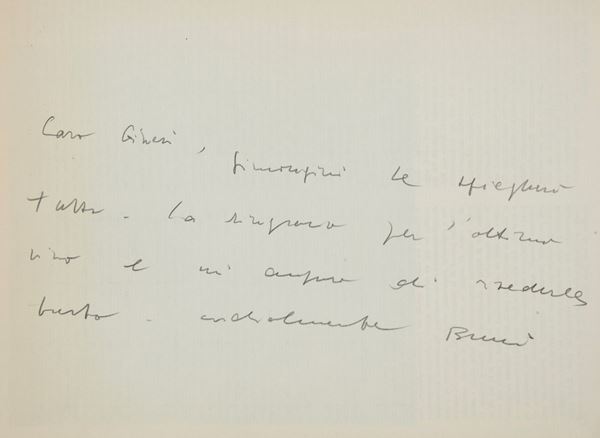 Caro Ginesi, Simongini le spiegherà
tutto. La ringrazio per l'ottimo
vino e mi auguro di rivederla
presto. cordialmente